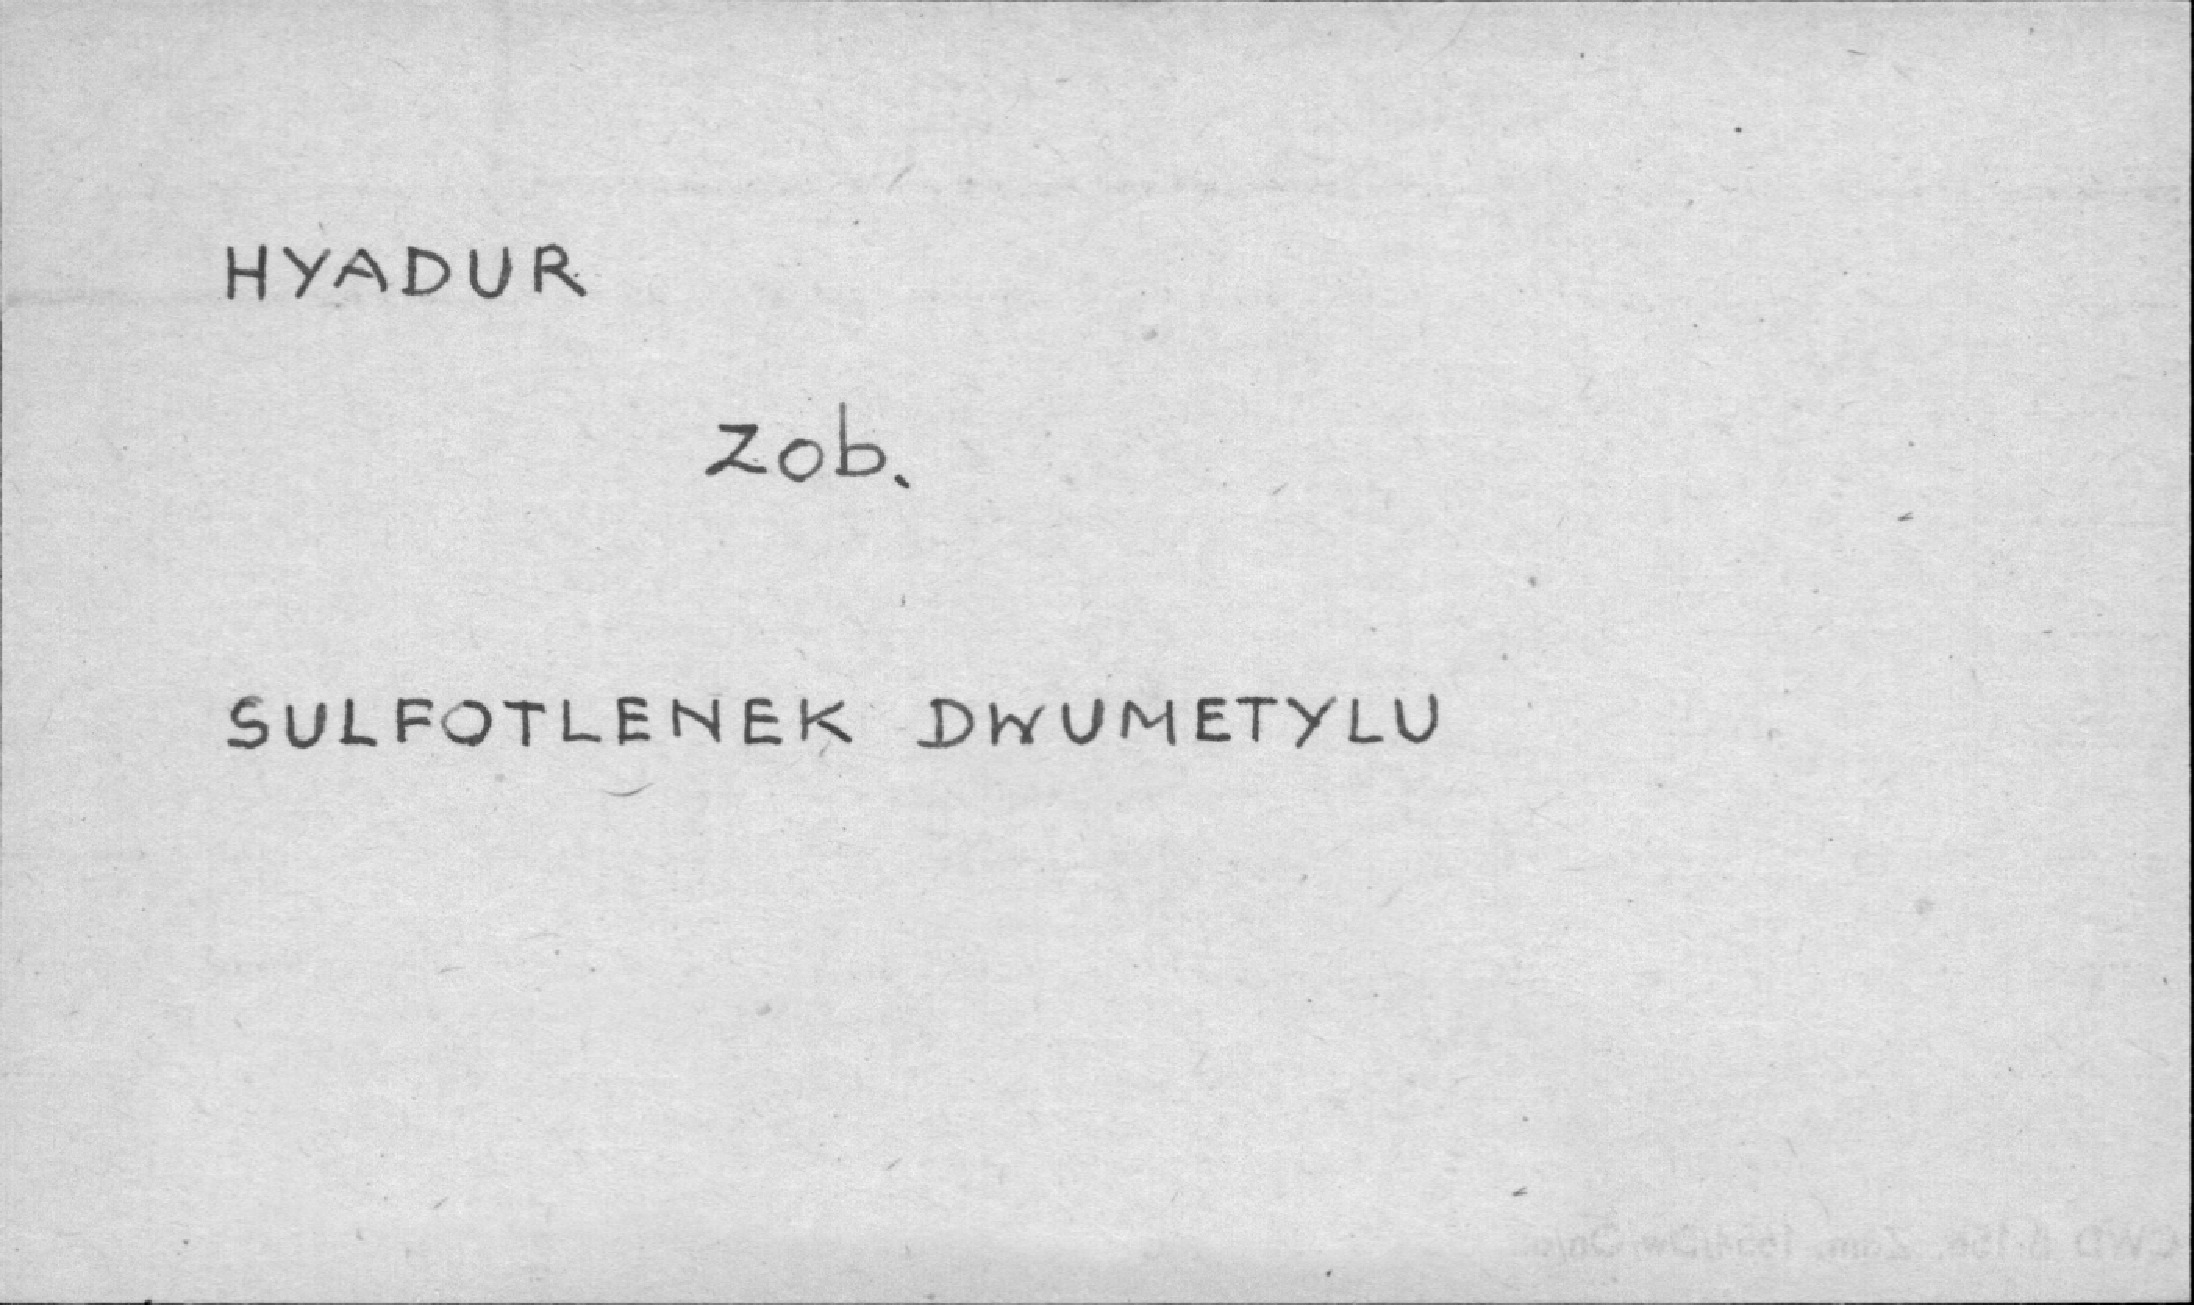 HYADUR
zob.
SULFOTLENEK DWUMETYLU